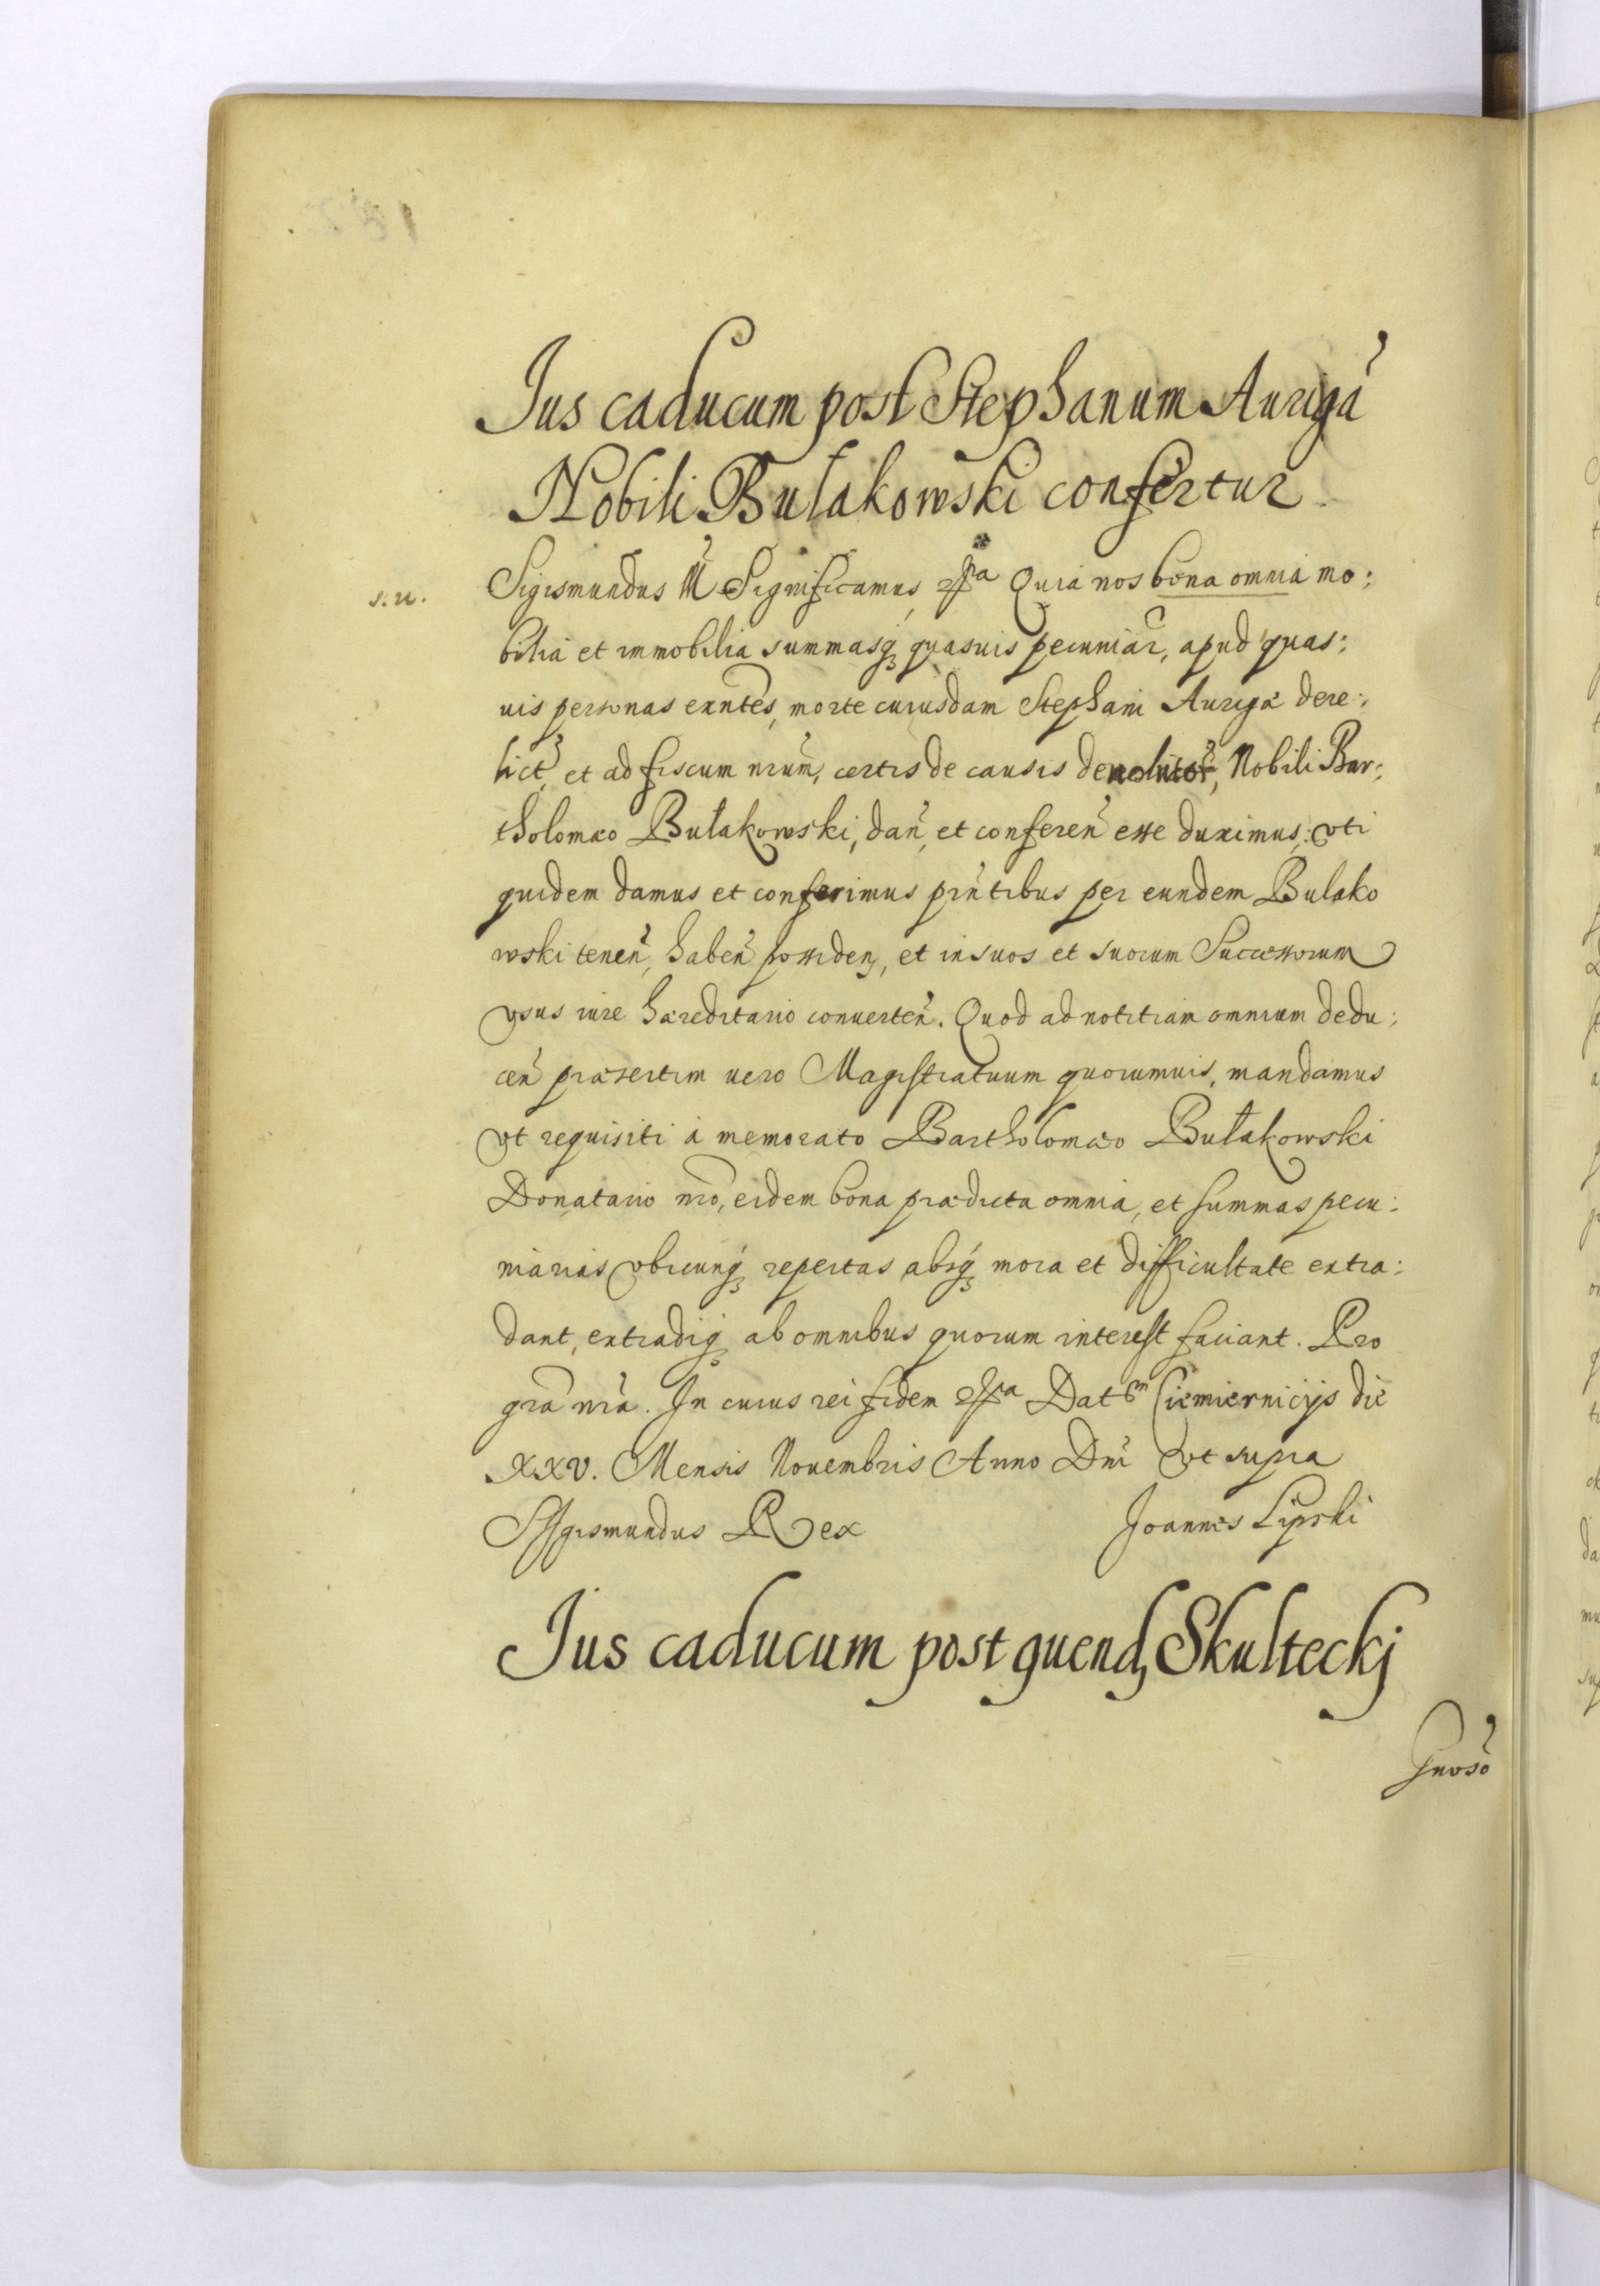 Ius caducum post Stephanum Aurigā
Nobili Bułakowski confertur
s.n.
Sigismundus III Significamus etca Quia nos bona omnia mo:
bilia et immobilia summasqꝫ quasuis pecuniar, apud quas:
uis personas exntēs, morte cuiusdam Stephani Auriga dere:
lict̃ et ad fiscum nrūm, certis de causis deuolut̃, Nobili Bar:
tholomæo Bułakowski, dañ, et conferen̄ esse duximus: vti
quidem damus et conferimus prn̄tibus per eundem Bulako
wski tenen̄, haben̄ possiden, et in suos et suorum Successorum
vsus iure hæreditario conuerten̄. Quod ad notitiam omnium dedu:
cen̄ præsertim uero Magistratuum quorumuis, mandamus
vt requisiti à memorato Bartholomæo Bułakowski
Donatario nrō, eidem bona prædicta omnia, et summas pecu:
niarias vbicunqꝫ repertas absqꝫ mora et difficultate extra:
dant, extradiqꝫ ab omnibus quorum interest faciant. Pro
gra̅ nrā. In cuius rei fidem etca Dat Ciemiernicijs die
XXV. Mensis Nouembris Anno Dnī vt supra
Sigismundus Rex Joannes Lipski
Ius caducum post quend, Skulteckj